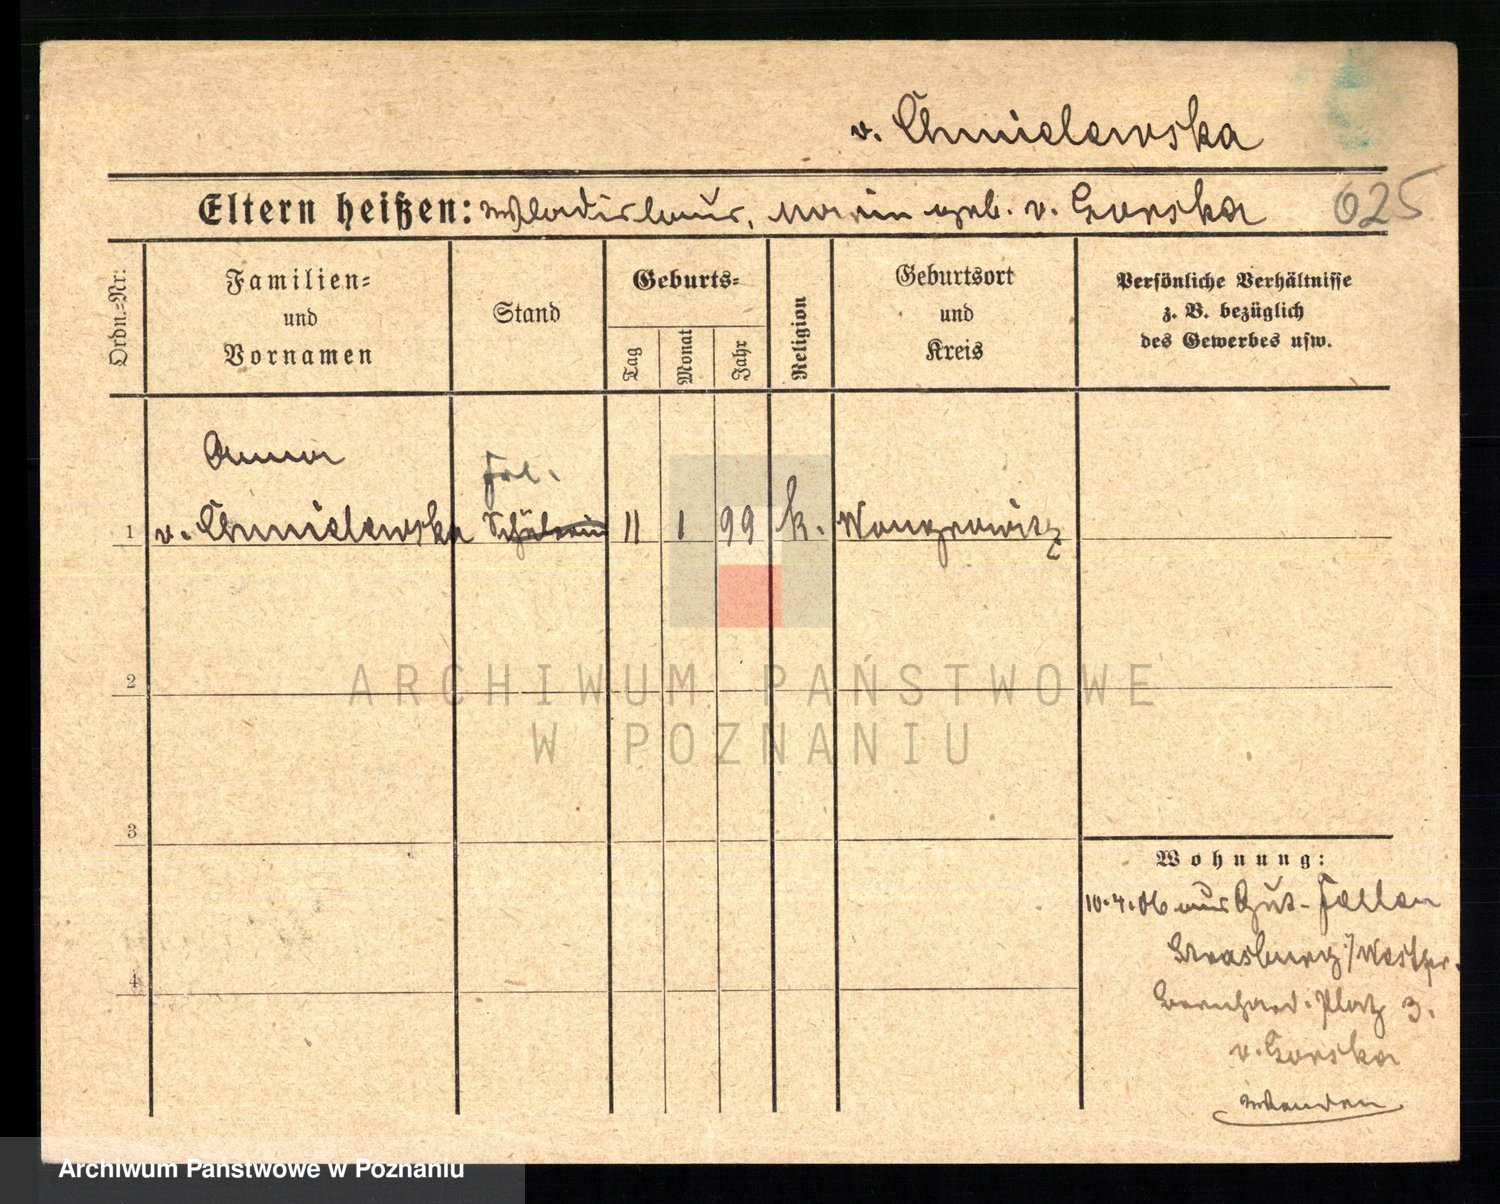 v. Chmielewska
Eltern heißen: Wladislaus, Marie geb. v. Gorska
025
Ordn.-Nr:
Familien-
und
Vornamen
Stand
Geburts-
Tag
Monat
Jahr
Religion
Geburtsort
und
Kreis
Persönliche Verhältnisse
z. B. bezüglich
des Gewerbes usw.
Anna
Frl.
1 v. Chmielewska Schülerin 11 1 99 k. Wongrowitz
2
3
4
Wohnung:
10.4.06 aus Gut-
Strasburg i/Westpr.
Bernhard. Platz 3.
v. Gorska
wenden
ARCHIWUM PAŃSTWOWE
W POZNANIU
Archiwum Państwowe w Poznaniu